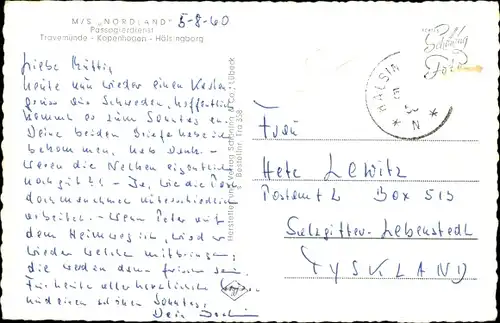 M/S „NORDLAND"
Passagierdienst
Travemünde - Kopenhagen - Hälsingborg
5-8-60
Liebe Mutti,
heute nun wieder einen Karten
aus Schweden, hoffentlich
kommt er zum Sonntag an.
Deine beiden Briefe habe ich
bekommen, hab Dank. -
Waren die Nelken eigentlich
noch gut? - Ja, wie die Post
doch manchmal unterschiedlich
arbeitet. - Wenn Peter auf
dem Heimweg ist, wird er
wieder welche mitbringen,
die werden dann frischer sein.
Für heute alles herzliche
und einen schönen Sonntag,
Dein
Herstellung und Verlag Schöning & Co., Lübeck
Bestellnr. Tra 358
Schöning
Foto
HÄLSIN
Frau
Lewitz
Postamt 2 Box 513
Salzgitter-Lebenstedt
TYSKLAND